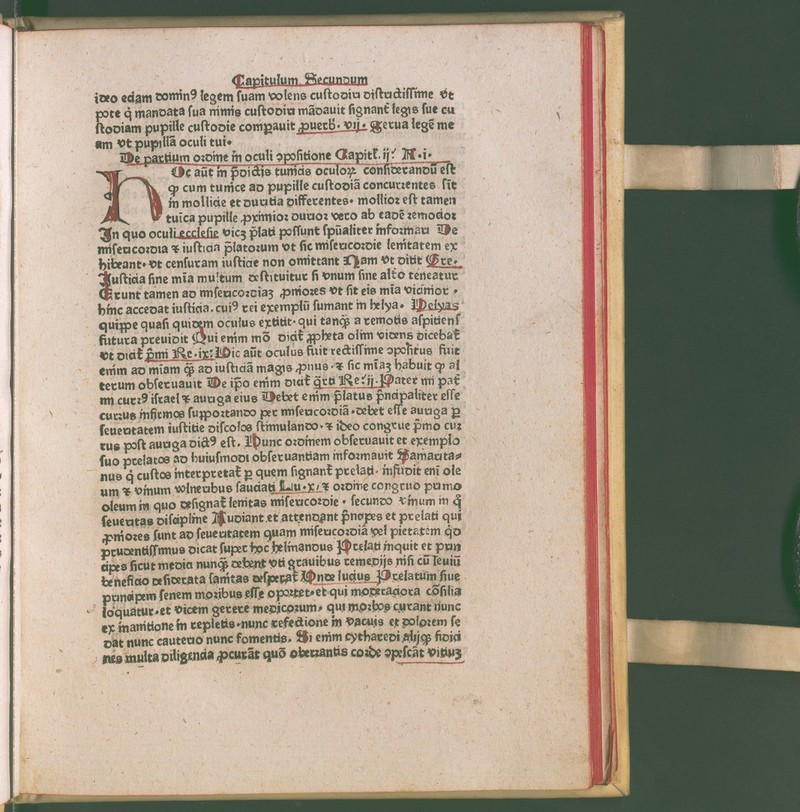 Capitulum Secundum
ideo eciam domin⁹ legem suam volens custodiri districtissime vt
pote q̇ mandata sua nimis custodiri mādauit signant̄ legis sue cu
stodiam pupille custodie compauit ꝓuerb̄. vij. Serua legē me
am vt pupillā oculi tui.
De partium ordine in oculi ꝯpositione Capit̄. ij. A. i.
HOc aūt in p̄dictis tunicis oculoꝝ considerandū est
ꝙ cum tunice ad pupille custodiā concurrentes sīt
in mollicie et duritia differentes. mollior est tamen
tunica pupille ꝓximior durior vero ab eadē remotior
In quo oculi ecclesie vicꝫ p̄lati possunt spūaliter informari De
misericordia ⁊ iusticia p̄latorum vt sic misericordie lenitatem ex
hibeant. vt censuram iusticie non omittant Nam vt dicit Gre.
Iusticia sine mīa multum destituitur si vnum sine alt̄o teneatur
Erunt tamen ad misericordiaꝫ ꝓniores vt sit eis mīa vicinior.
hinc accedat iusticia. cui⁹ rei exemplū sumant in helya. Helyas
quippe quasi quidem oculus extitit. qui tanqꝫ a remotis aspiciens
futura preuidit Qui enim mō dicit̄ ꝓpheta olim videns dicebat̄
vt dicit̄ p̄mi Re. ix. Hic aūt oculus fuit rectissime ꝯpositus fuit
enim ad miam qꝫ ad iusticiā magis ꝓnus. ⁊ sic mīaꝫ habuit ꝙ al
terum obseruauit De ip̄o enim dicit̄ q̄rti Re. ij. Pater mi pat̄
mi curr⁹ israel ⁊ auriga eius Debet enim p̄latus p̄ncipaliter esse
currus infirmos supportando per misericordiā. debet esse auriga ꝑ
seueritatem iusticie discolos stimulando. ⁊ ideo congrue p̄mo cur
rus post auriga dict⁹ est. Hunc ordinem obseruauit et exemplo
suo prelatos ad huiusmodi obseruantiam informauit Samarita=
nus q̇ custos interpretat̄ ꝑ quem signant̄ prelati. infudit eni ole
um ⁊ vinum vulneribus sauciati Lu. x. ⁊ ordine congruo primo
oleum in quo designat̄ lenitas misericordie. secundo vinum in q̊
seueritas discipline Audiant et attendant p̄ncipes et prelati qui
ꝓniores sunt ad seueritatem quam misericordiā vel pietatem qd̄
prudentissimus dicat super hoc helinandus Prelati inquit et prin
cipes sicut medici nunqꝫ debent vti grauibus remedijs nisi cū leuiū
beneficio desiderata sanitas desperat̄ Vnde lucius Prelatum siue
principem senem moribus esse oportet. et qui moderatiora cōsilia
loquatur. et vicem gerere medicorum. qui morbos curant nunc
ex inanitione in repletis. nunc refectione in vacuis et dolorem se
dat nunc cauterio nunc fomentis. Si enim cytharedi aliiqꝫ fidici
nes multa diligencia ꝓcurāt quō oberrantis corde ꝯpescāt vitiuꝫ